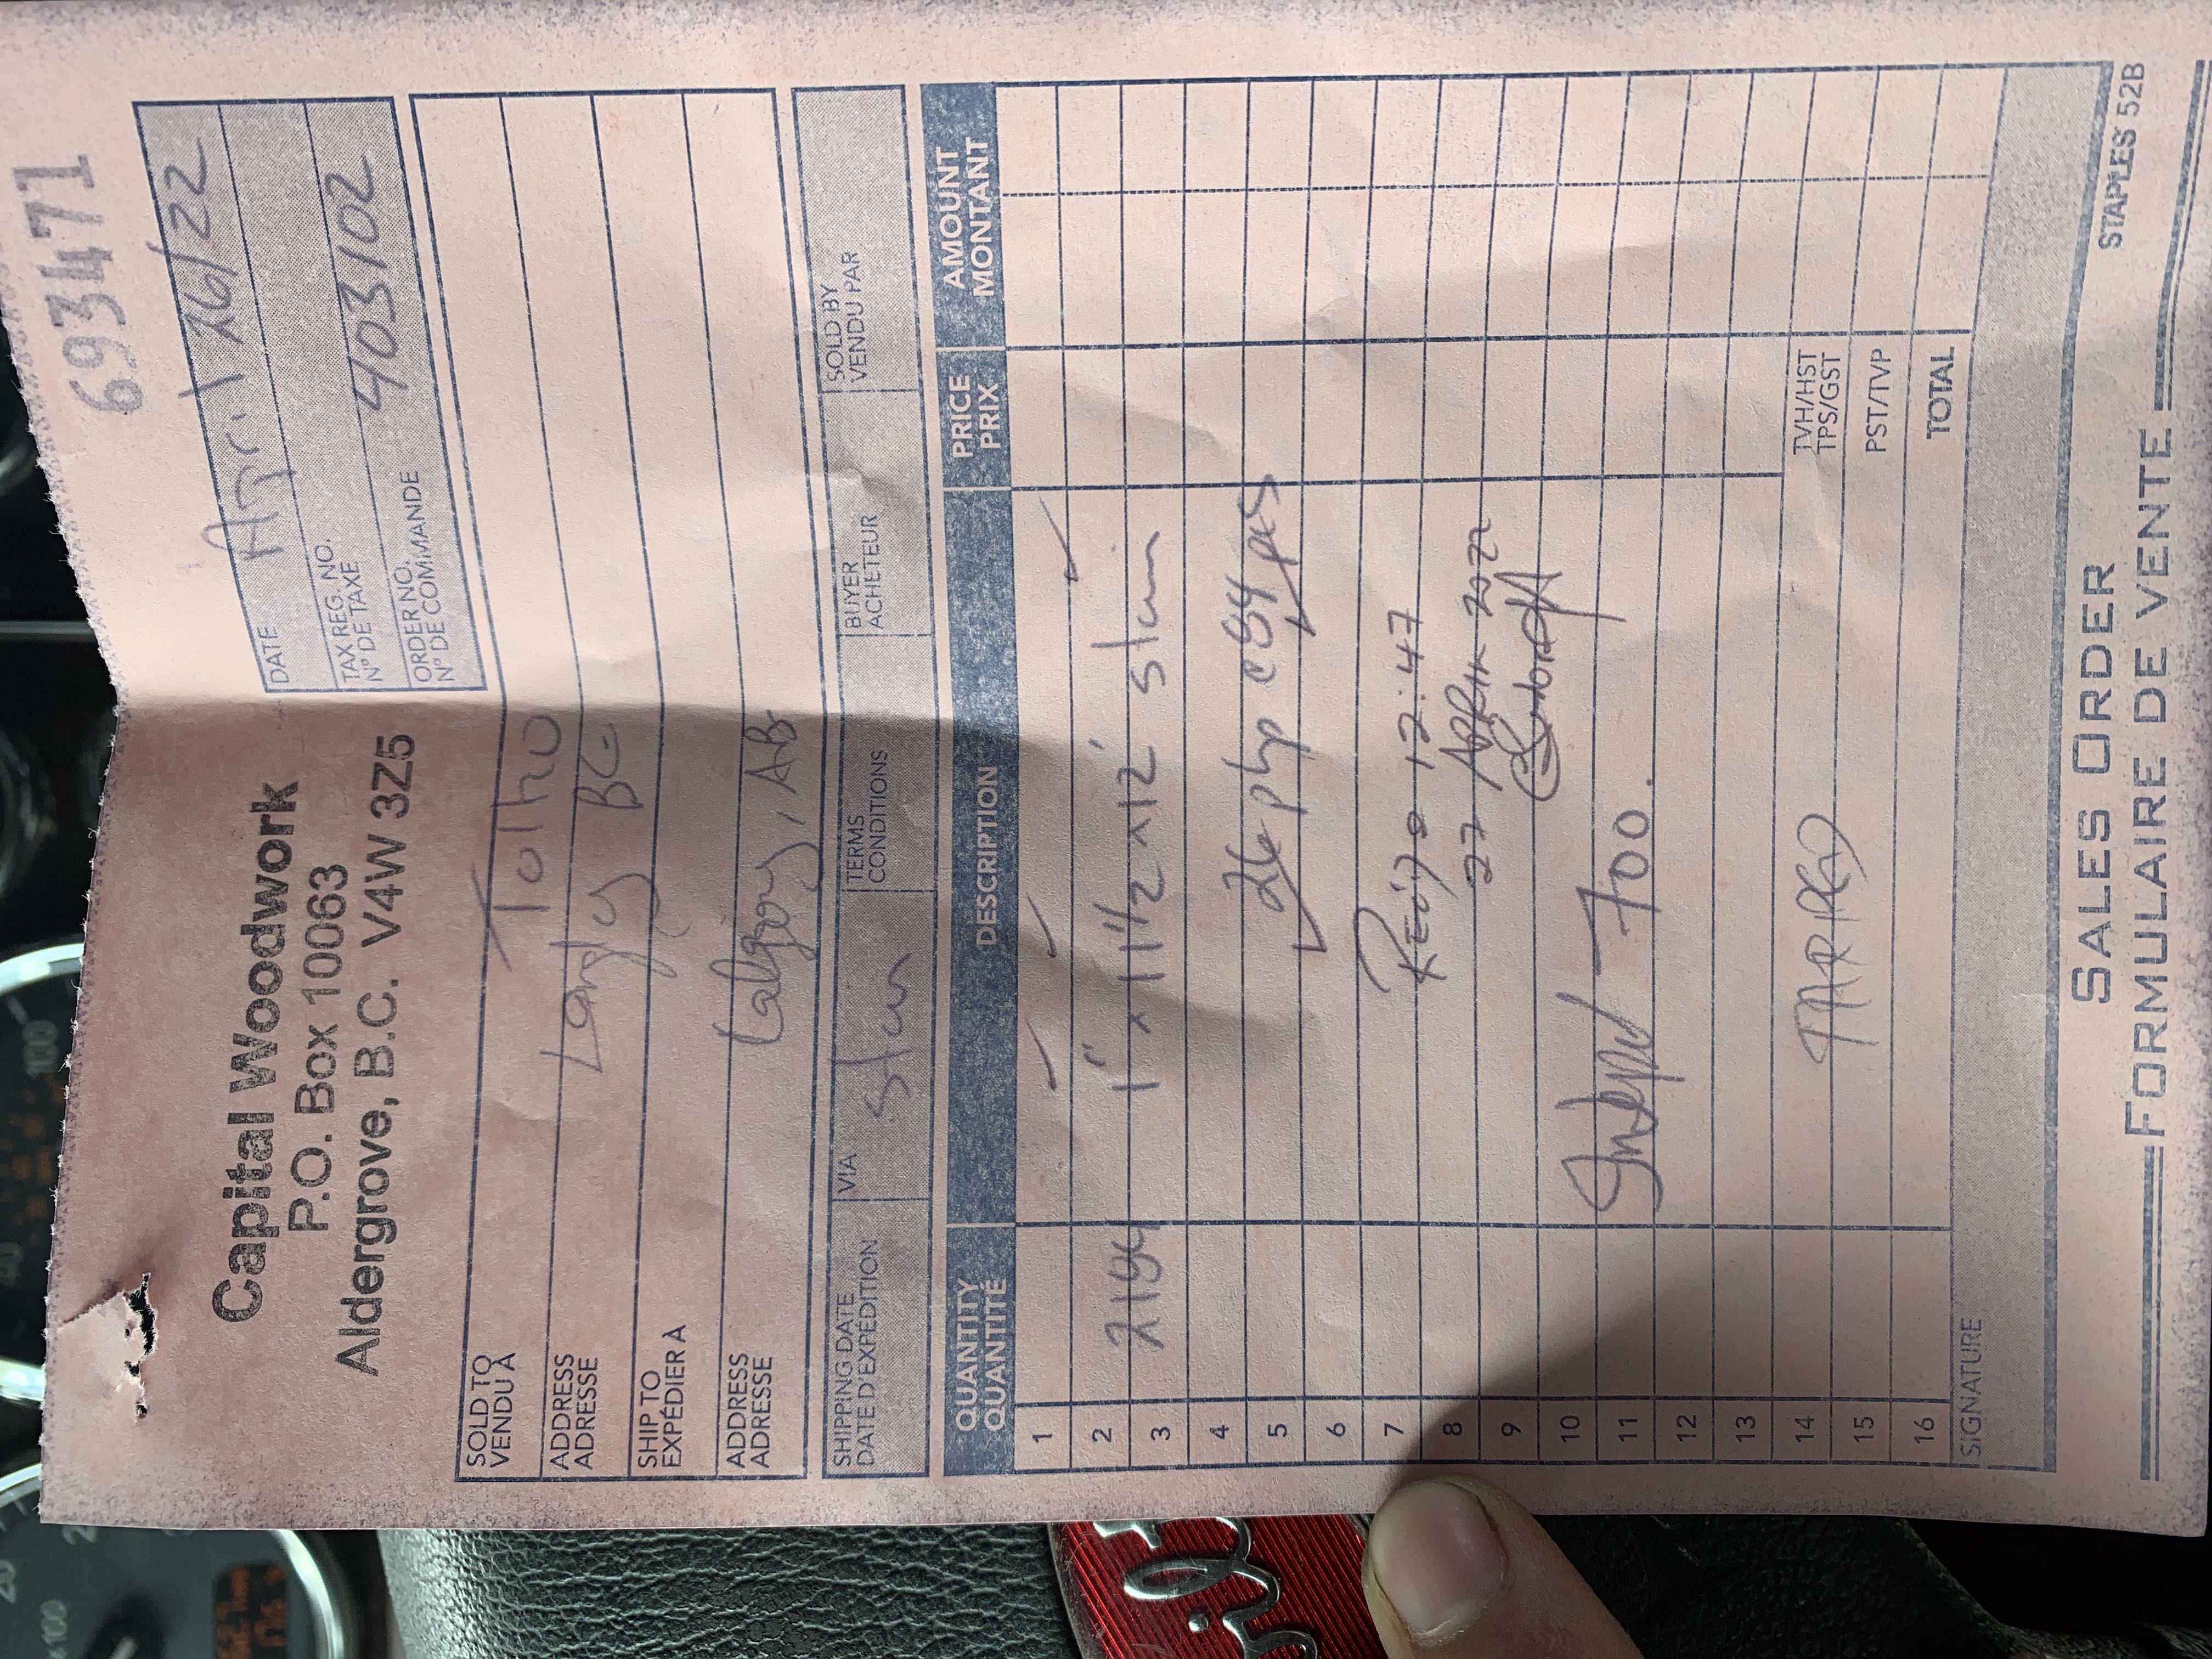 693471
Capital Woodwork
P.O. Box 10063
Aldergrove, B.C. V4W 3Z5
DATE April 26/22
TAX REG. NO.
Nº DE TAXE
ORDER NO. 403102
Nº DE COMMANDE
SOLD TO Tolko
VENDU À
ADDRESS Langly BC
ADRESSE
SHIP TO
EXPÉDIER À
ADDRESS Calgary, AB
ADRESSE
SHIPPING DATE
DATE D'EXPÉDITION
VIA
TERMS
CONDITIONS
BUYER
ACHETEUR
SOLD BY
VENDU PAR
QUANTITY
QUANTITÉ
DESCRIPTION
PRICE
PRIX
AMOUNT
MONTANT
1
2
3 2184 1" x 11 1/2 x 12' stain
4
5 26 php @ 84 pcs
6
7 12:47
8 27 APRIL 2022
9
10
11 700.
12
13
14 TARPED
TVH/HST
TPS/GST
15
PST/TVP
16
TOTAL
SIGNATURE
SALES ORDER
FORMULAIRE DE VENTE
STAPLES 52B
100